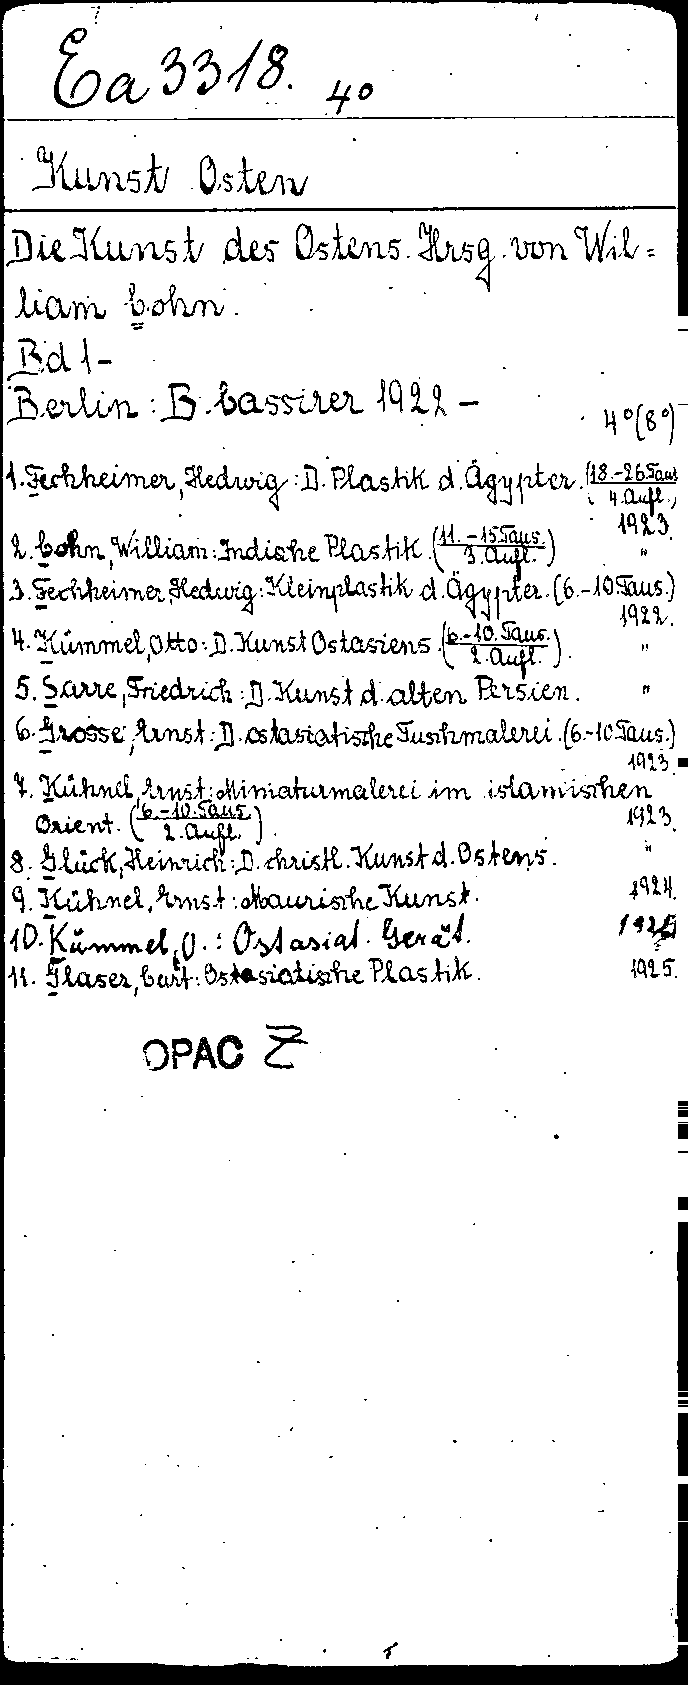 Ea 3318. 4°
Kunst Osten
Die Kunst des Ostens. Hrsg. von Wil=
liam Cohn.
Bd 1-
Berlin: B. Cassirer 1922 -
4°(8°)
1. Fechheimer, Hedwig: D. Plastik d. Ägypter. (18.-26. Taus. 4. Aufl.)
1923.
2. Cohn, William: Indische Plastik. (11.-15. Taus. 3. Aufl.) "
3. Fechheimer, Hedwig: Kleinplastik d. Ägypter. (6.-10. Taus.)
1922.
4. Kümmel, Otto: D. Kunst Ostasiens. (6.-10. Taus. 2. Aufl.). "
5. Sarre, Friedrich: D. Kunst d. alten Persien. "
6. Grosse, Ernst: D. ostasiatische Tuschmalerei. (6.-10. Taus.)
1923.
7. Kühnel, Ernst: Miniaturmalerei im islamischen
Orient. (6.-10. Taus. 2. Aufl.). 1923.
8. Glück, Heinrich: D. christl. Kunst d. Ostens. "
9. Kühnel, Ernst: Maurische Kunst. 1924.
10. Kümmel, O.: Ostasiat. Gerät. 1925
11. Glaser, Curt: Ostasiatische Plastik. 1925.
OPAC Z